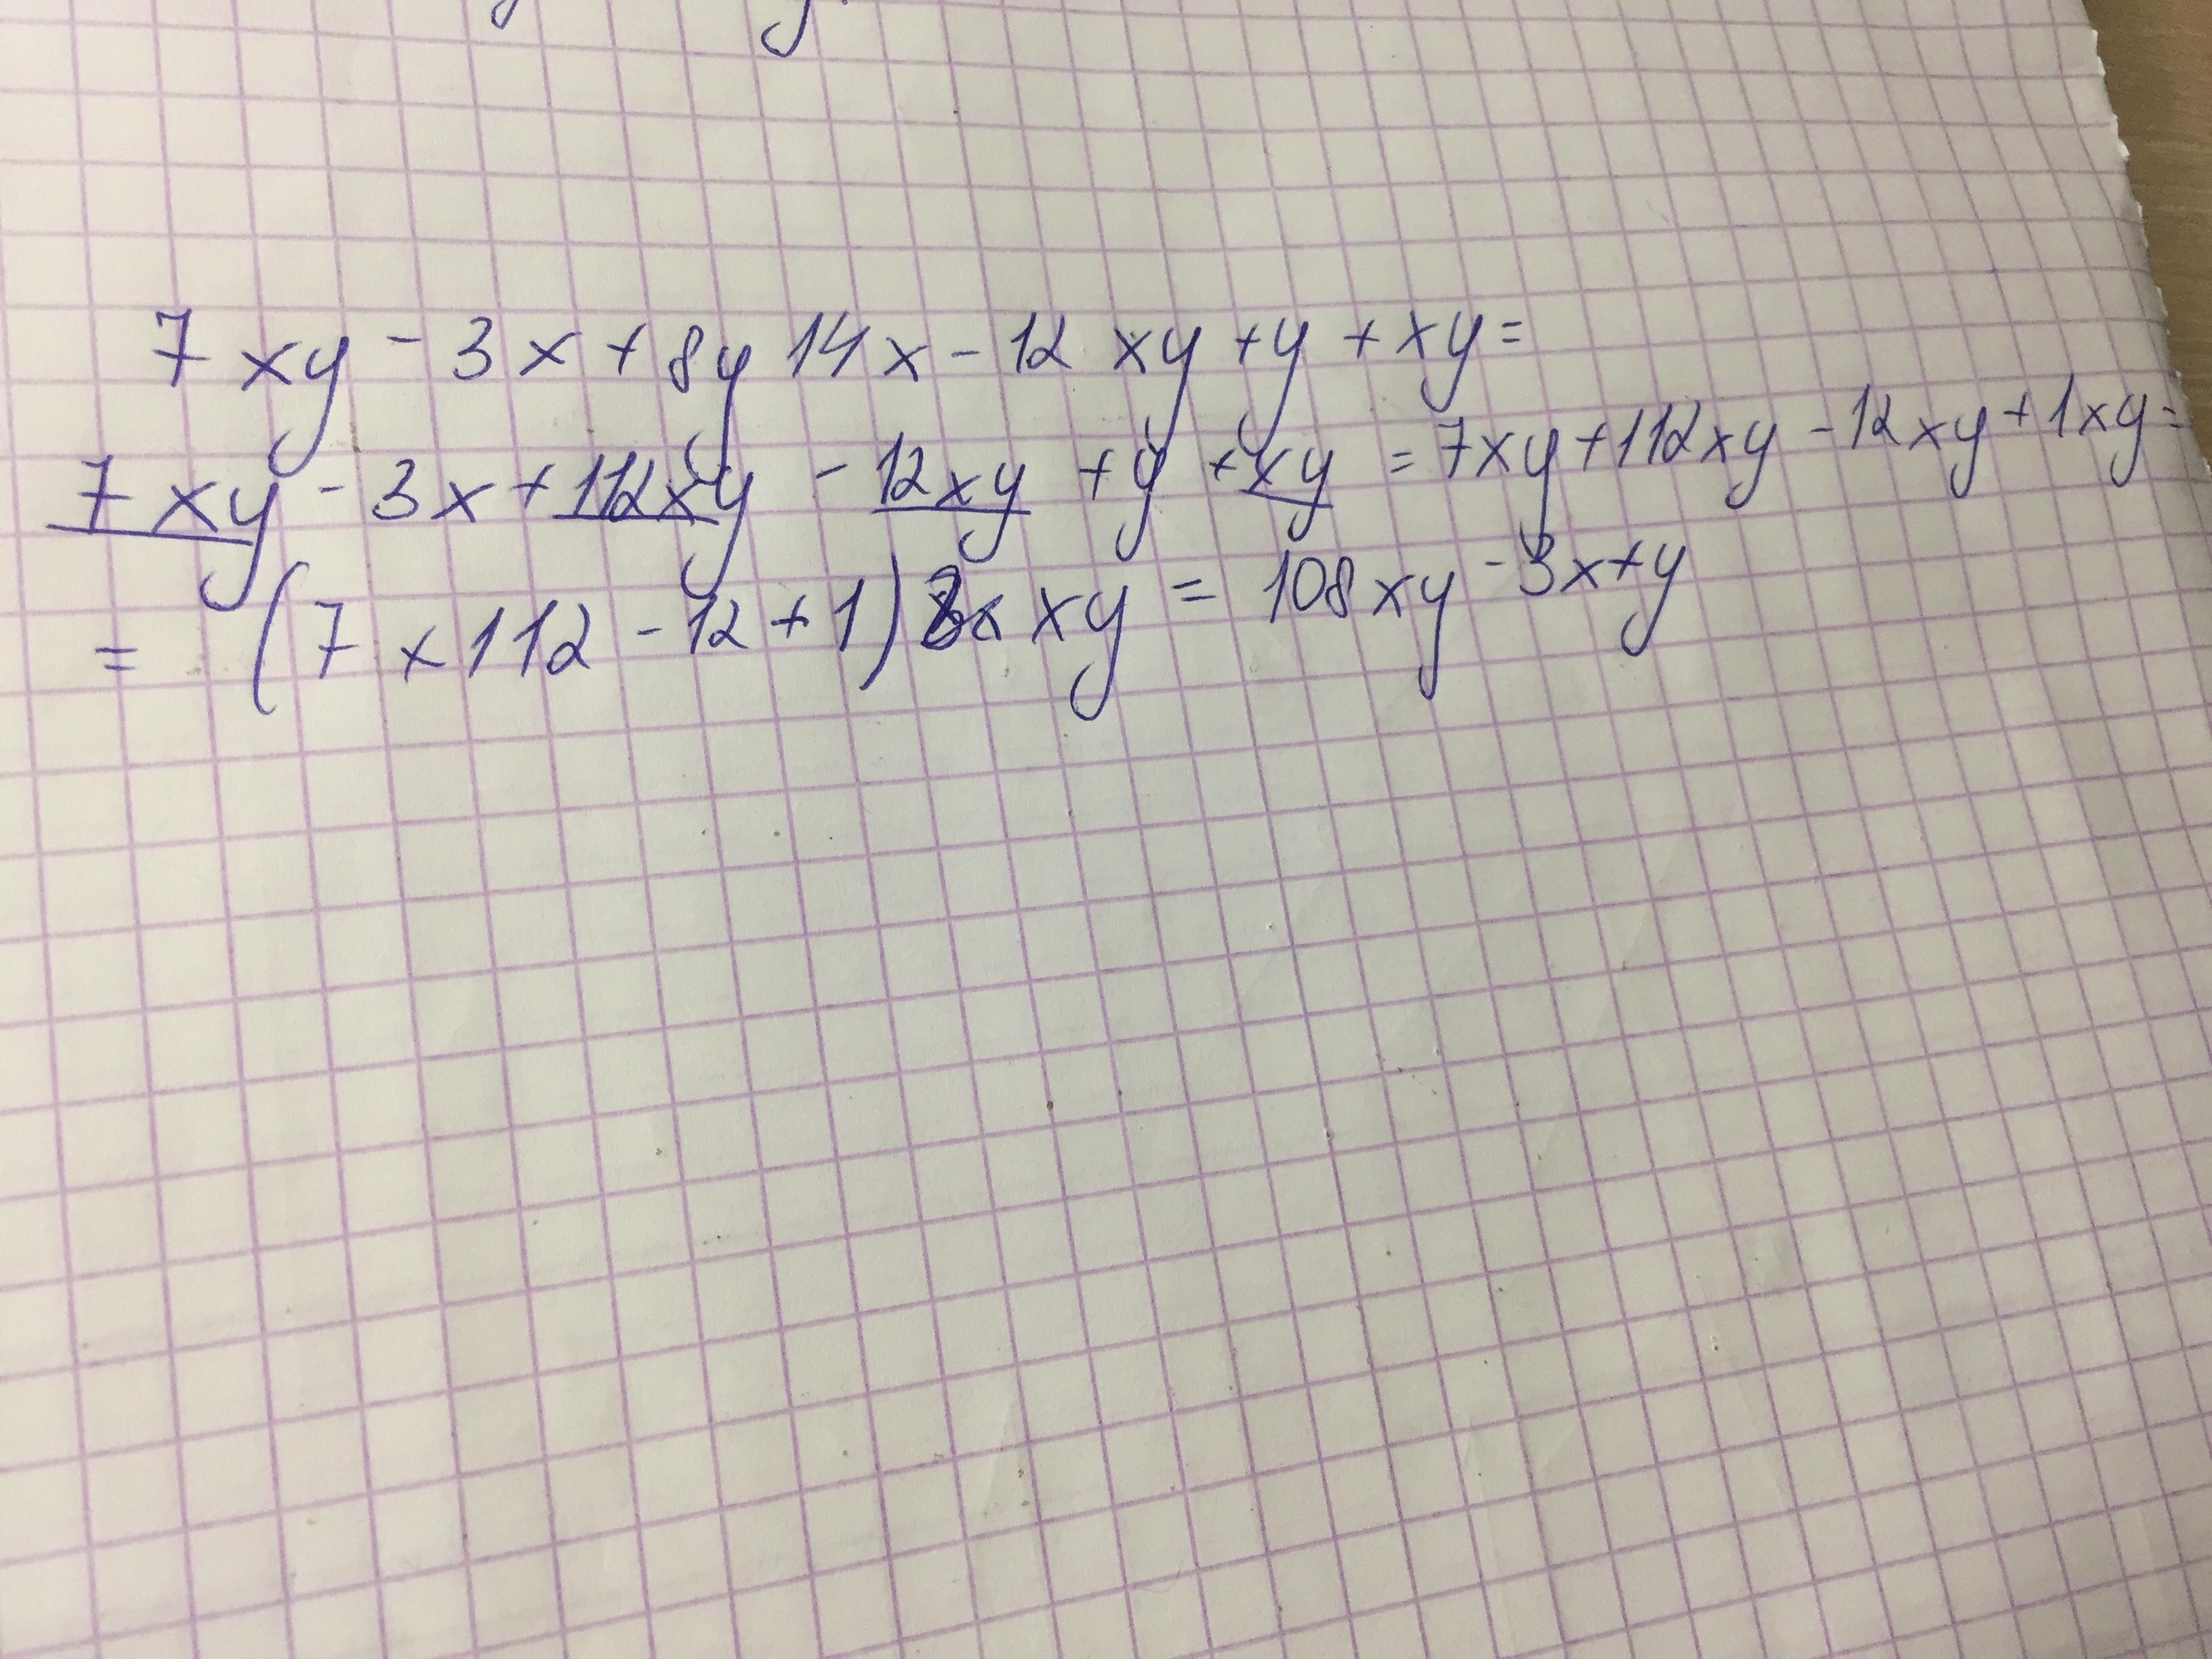 7xy - 3x + 8y 14x - 12xy + y + xy =
7xy - 3x + 112xy - 12xy + y + xy = 7xy + 112xy - 12xy + 1xy =
= (7 x 112 - 12 + 1) xy = 108xy - 3x + y